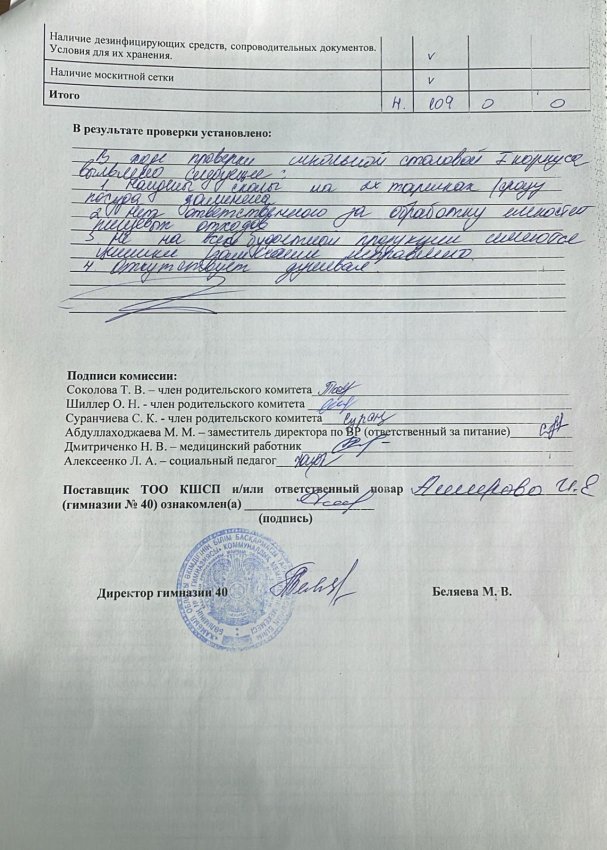 Наличие дезинфицирующих средств, сопроводительных документов.
Условия для их хранения. v
Наличие москитной сетки v
Итого 4. 109 0 0
В результате проверки установлено:
В ходе проверки школьной столовой I корпуса
выявлено следующее:
1 Найдены сколы на 2х тарелках (сразу
посуда заменена
2 Нет ответственного за обработку емкостей
пищевых отходов
3 Не на всей продукции имеются
4 Отсутствует душевая
Подписи комиссии:
Соколова Т. В. – член родительского комитета
Шиллер О. Н. - член родительского комитета
Суранчиева С. К. - член родительского комитета
Абдуллаходжаева М. М. – заместитель директора по ВР (ответственный за питание)
Дмитриченко Н. В. – медицинский работник
Алексеенко Л. А. – социальный педагог
Поставщик ТОО КШСП и/или ответственный повар Аширова И.Е
(гимназии № 40) ознакомлен(а)
(подпись)
Директор гимназии 40 Беляева М. В.